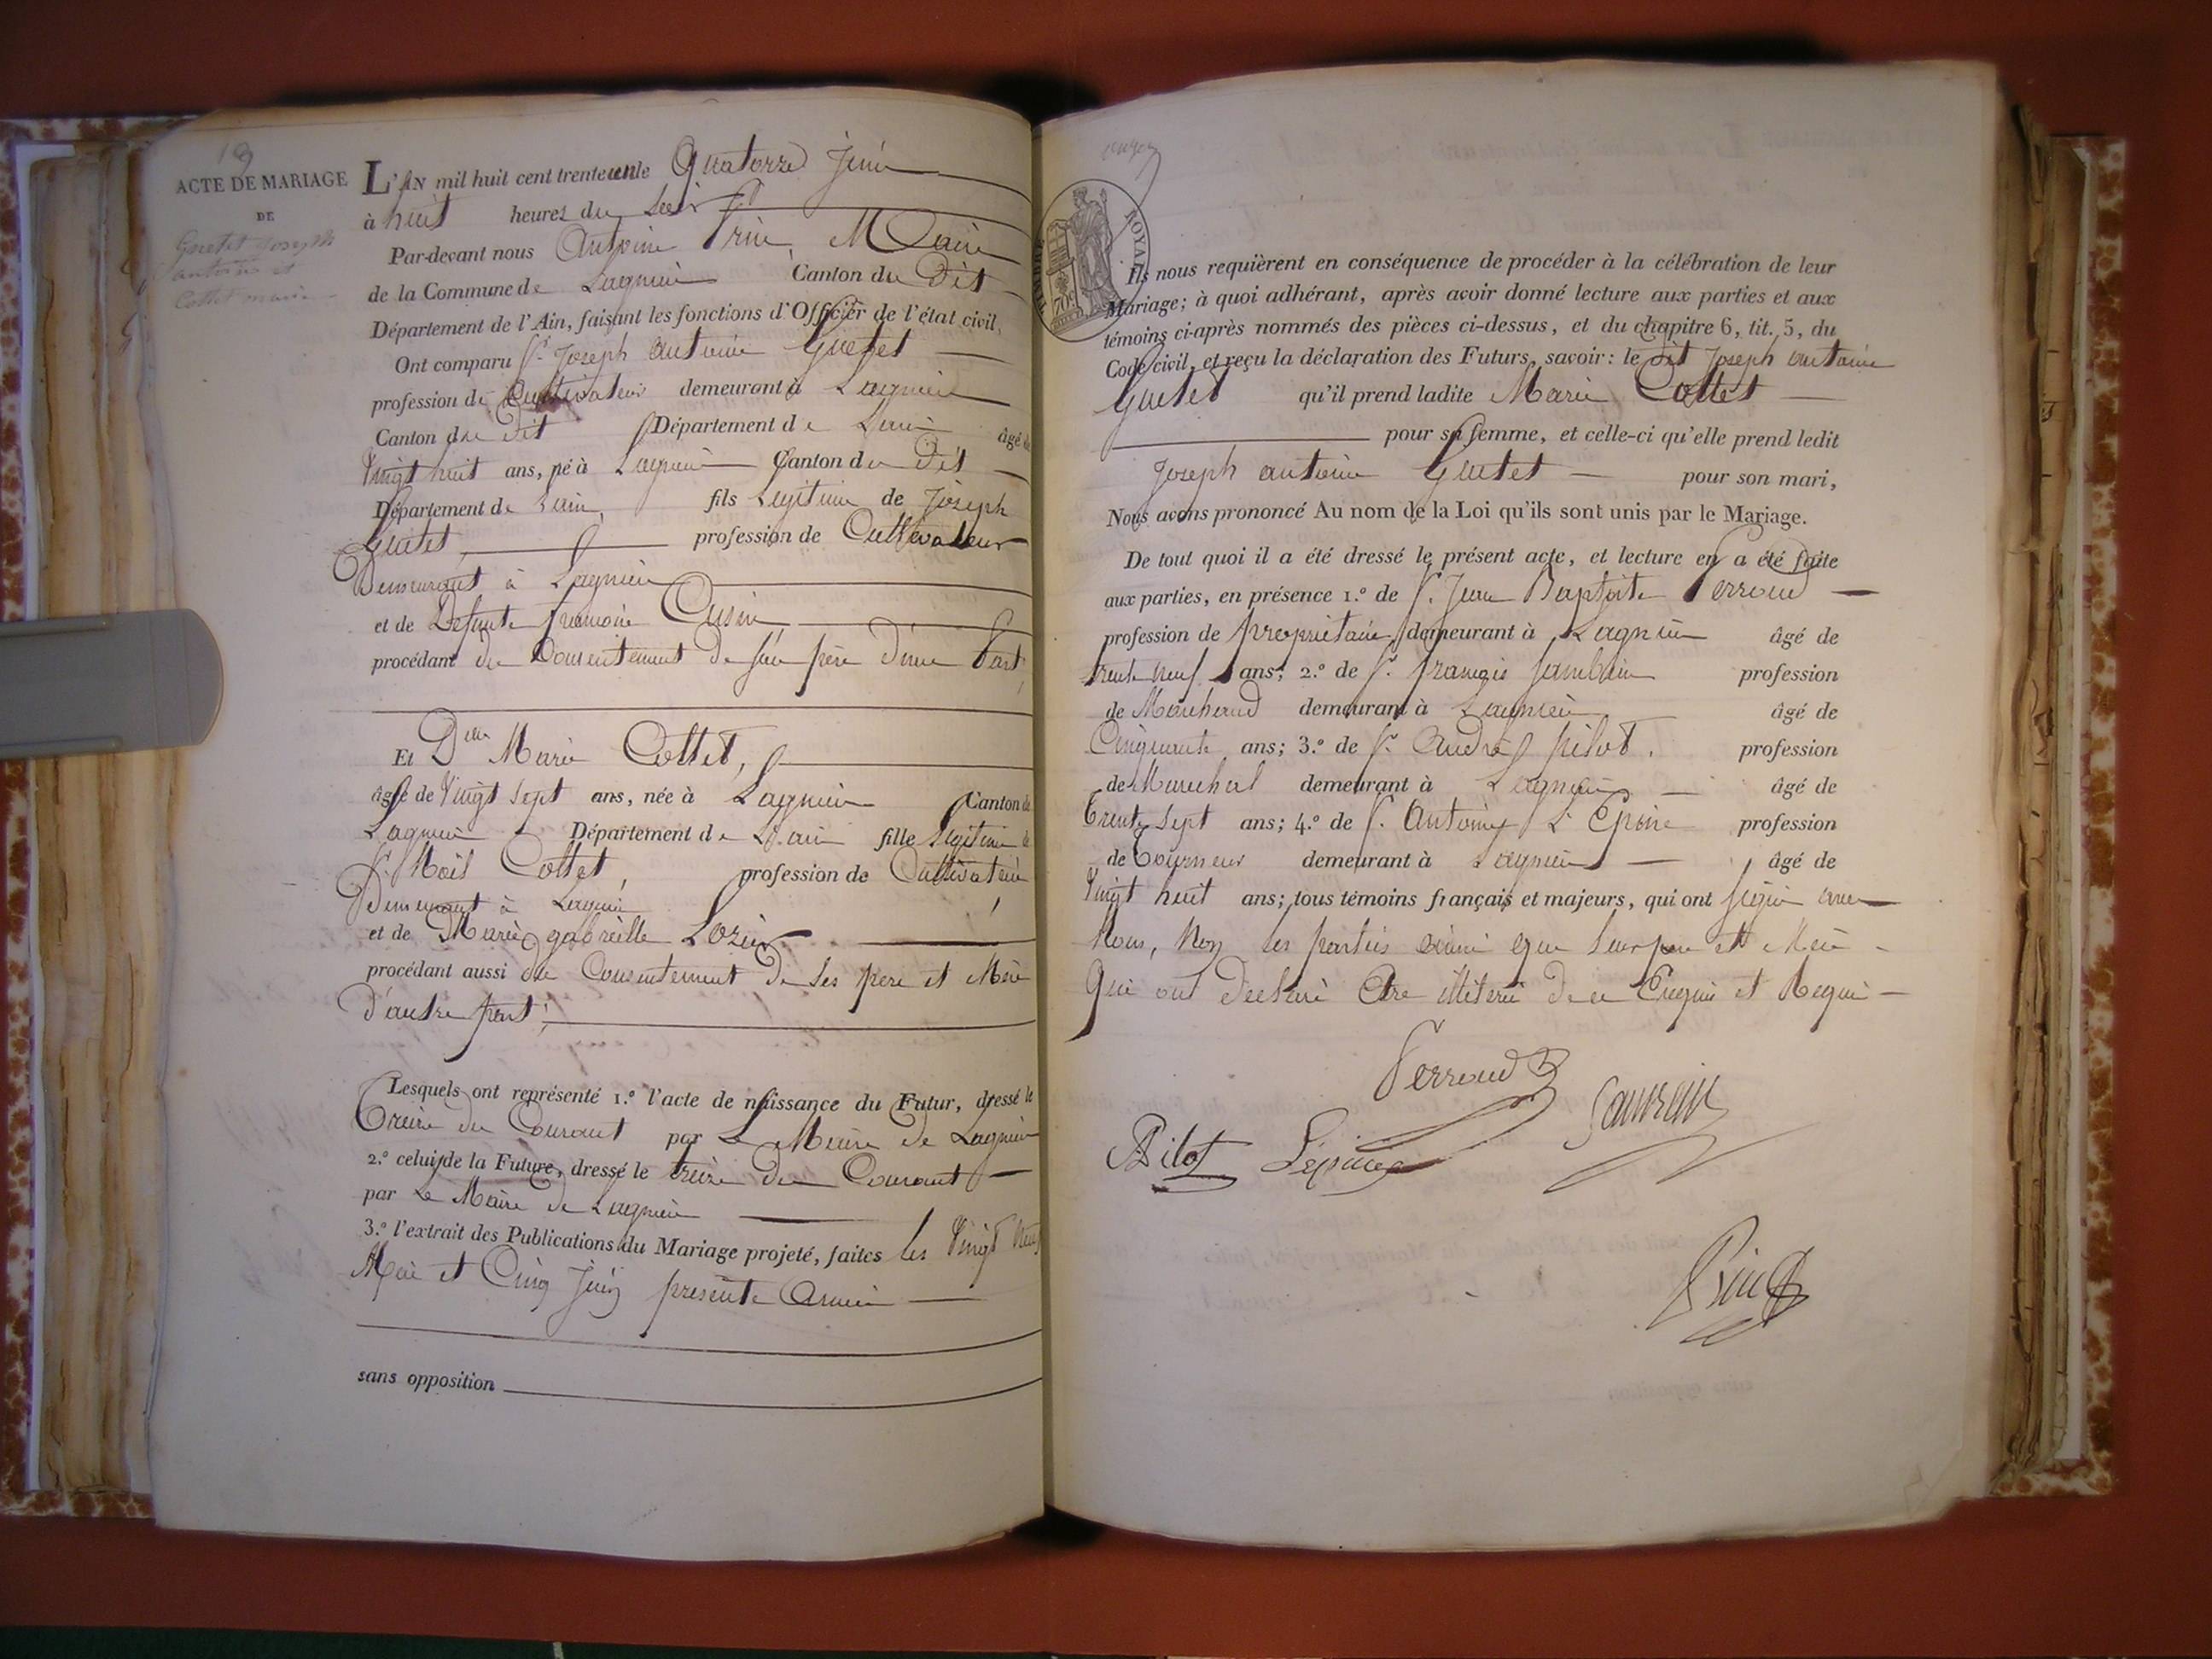 19
ACTE DE MARIAGE
DE
Guetet Joseph
antoine et
Collet marie
L'AN mil huit cent trente un le Quatorze Juin
à huit heures du Soir
Par-devant nous Antoine Prin, Maire
de la Commune de Lagnieu Canton du Dit
Département de l'Ain, faisant les fonctions d'Officier de l'état civil,
Ont comparu Sr. Joseph antoine Guetet
profession de Cultivateur demeurant à Lagnieu
Canton du Dit Département de Lain âgé de
Vingt huit ans, né à Lagnieu Canton du Dit
Département de Lain, fils Legitime de Joseph
Guetet, profession de Cultivateur
Demeurant à Lagnieu
et de Defunte françoise Cusin
procédant du Consentement de son père d'une Part,
Et Dlle Marie Collet,
âgée de Vingt Sept ans, née à Lagnieu Canton de
Lagnieu Département de Lain fille Legitime de
Sr. Collet, profession de Cultivateur
Demeurant à Lagnieu
et de Marie gabrielle Lozier
procédant aussi du Consentement de ses pere et Mere
d'autre part;
Lesquels ont représenté 1.º l'acte de naissance du Futur, dressé le
treize du Courant par Le Maire de Lagnieu
2.º celui de la Future, dressé le treize du Courant
par Le Maire de Lagnieu
3.º l'extrait des Publications du Mariage projeté, faites les Vingt neuf
Mai et Cinq Juin presente Année
sans opposition
TIMBRE ROYAL
70c
Ils nous requièrent en conséquence de procéder à la célébration de leur
Mariage; à quoi adhérant, après avoir donné lecture aux parties et aux
témoins ci-après nommés des pièces ci-dessus, et du chapitre 6, tit. 5, du
Code civil, et reçu la déclaration des Futurs, savoir: le dit Joseph antoine
Guetet qu'il prend ladite Marie Collet
pour sa femme, et celle-ci qu'elle prend ledit
Joseph antoine Guetet pour son mari,
Nous avons prononcé Au nom de la Loi qu'ils sont unis par le Mariage.
De tout quoi il a été dressé le présent acte, et lecture en a été faite
aux parties, en présence 1.º de Sr. Jean Baptiste Perroud
profession de propriétaire demeurant à Lagnieu âgé de
trente neuf ans; 2.º de Sr. françois profession
de Marchand demeurant à Lagnieu âgé de
Cinquante ans; 3.º de Sr. André pilot, profession
de Marechal demeurant à Lagnieu âgé de
trente Sept ans; 4.º de Sr. Antoine L'Epine profession
de Tourneur demeurant à Lagnieu âgé de
Vingt huit ans; tous témoins français et majeurs, qui ont signé avec
Nous, Non les parties ainsi que leur pere et Mere
Qui ont declaré Etre illiteré de ce Enquis et Requis
Perroud
Pilot Lépine
Prin